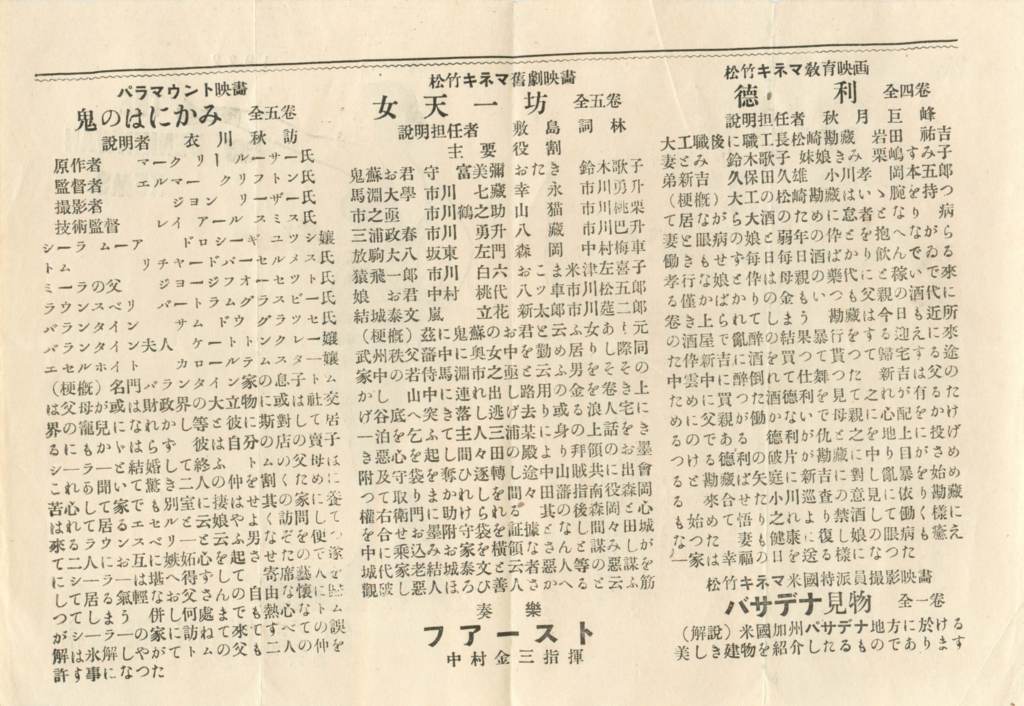 パラマウント映畵
鬼のはにかみ 全五卷
説明者 衣川秋訪
原作者 マーク リー ルーサー氏
監督者 エルマー クリフトン氏
撮影者 ジョン リーザー氏
技術監督 レイ アール スミス氏
シーラ ムーア ドロシーギユツシ孃
トム リチヤードバーセルメス氏
ミーラの父 ジヨージフオーセツト氏
ラウンスベリ バートラムグラスビー氏
バランタイン サム ドウ グラツセ氏
バランタイン夫人 ケートトンクレー孃
エセルホイト カロールテムスター孃
(梗概)名門バランタイン家の息子トム
は父母が或は財政界の大立物に或は社交
界の寵兒になれかし等と彼に斯對して居
るにもかトはらず 彼は自分の店の賣子
シーラーと結婚して終ふ トムの父母は
これる聞いて驚き二人の仲を割くために
苦心して家でも別室に捿はせ其の家に養
はれて居るエセルと云娘やよく訪問して
來るラウンスベリーと云ふ男なぞを使つ
て二人にお互に嫉妬心を起させたので遂
にシーラーは堪へ得ずして 寄席藝人を
して居る氣輕なお父さんの自由な懷に歸
つてしまう 併し何處までも熱心なトム
がシーラーの家に訪ねて來てすべての誤
解は氷解しやがてトムの父も二人の仲を
許す事になつた
松竹キネマ舊劇映畵
女天一坊 全五卷
説明担任者 敷島詞林
主要役割
鬼蘇お君 守 富美彌 おたき 鈴木歌子
馬淵大學 市川 七藏 幸永 市川勇升
市之亟 市川鶴之助 山猫 市川桃栗
三浦政春 市川 勇升 八藏 市川巴升
放駒大八 坂東 左門 森岡 中村梅車
猿飛一郎 市川 白六 おこま 米津左喜子
娘 お君 中村 桃代 八ツ車 市川松五郎
結城泰文 嵐 立花 新太郎 市川莚二郎
(梗概)茲に鬼蘇のお君と云ふ女あり元
武州秩父藩中に奥女中を勤め居りし際同
家中の若侍馬淵市之亟と云ふ男をそその
かし 山中に連れ出し路用の金を卷き上
げ谷底へ突き落し逃げ去り或る浪人宅に
一泊を乞ふて主人三浦某に身の上話をき
き惡心を起し間々田の殿より拜領のお墨
附及守袋を奪ひ逐轉し途中山賊共に出會
つて取りまかれしを間々田藩指南役森岡
權右衛門に助けられる 其の後森岡と心
を合せお墨附守袋を証據となし間々田城
中に乘込みお家を横領なさんと謀みしが
城代家老結城泰文と云者惡人の惡謀を
觀破し惡人ほろび善人さかへると云ふ筋
奏樂
フアースト
中村金三指揮
松竹キネマ敎育映画
德利 全四卷
説明担任者 秋月巨峰
大工職後に職工長松崎勘藏 岩田祐吉
妻とみ 鈴木歌子 妹娘きみ 栗嶋すみ子
弟新吉 久保田久雄 小川孝 岡本五郎
(梗概)大工の松崎勘藏はいゝ腕を持つ
て居ながら大酒のために怠者となり 病
妻と眼病の娘と弱年の伜とを抱へながら
働きもせず毎日毎日酒ばかり飲んでゐる
孝行な娘と伜は母親の藥代にと稼いで來
る僅かばかりの金もいつも父親の酒代に
卷き上られてしまう 勘藏は今日も近所
の酒屋で亂醉の結果暴行をする迎えに來
た伜新吉に酒を買つて貰つて歸宅する途
中雲中に醉倒れて仕舞つた 新吉は父の
ために買つた酒德利を見て之れが有るた
めに父親が働かないで母親に心配をかけ
るのである 德利が仇と之を地上に投げ
つける德利の破片が勘藏に中り目がさめ
ると勘藏は矢庭に新吉に對し亂暴を始め
る 來合せた小川巡査の意見に依り勘藏
も始めて悟り之れより禁酒して働く様に
なつた 妻も健康に復し娘の眼病も癒え
一家は幸福の日を送る樣になつた
松竹キネマ米國特派員撮影映畵
パサデナ見物 全一卷
(解説)米國加州パサデナ地方に於ける
美しき建物を紹介したるものであります